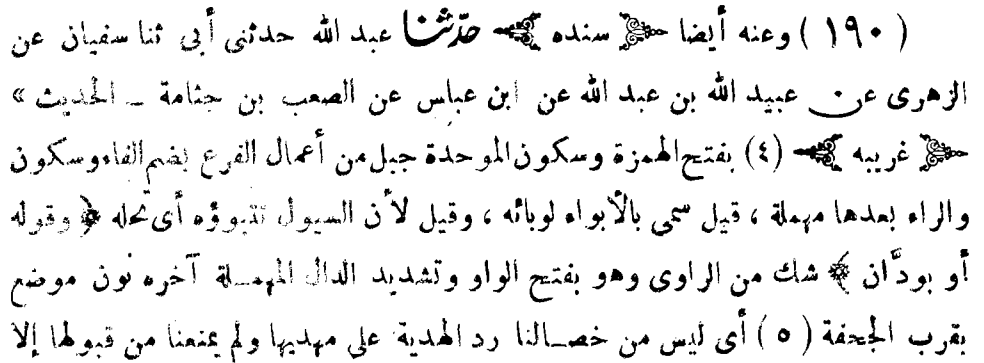 ( ١٩٠ ) وعنه أيضا ﴿ سنده ﴾ حدّثنا عبد الله حدثنى أبى ثنا سفيان عن
الزهرى عن عبيد الله بن عبد الله عن ابن عباس عن الصعب بن جثامة ــ الحديث »
﴿ غريبه ﴾ (٤) بفتح الهمزة وسكون الموحدة جبل من أعمال الفرع بضم الفاء وسكون
والراء بعدها مهملة ، قيل سمى بالأبواء لوبائه ، وقيل لأن السيول تتبوؤه أى تحله ﴿ وقوله
أو بودَّان ﴾ شك من الراوى وهو بفتح الواو وتشديد الدال المهمـلة آخره نون موضع
بقرب الجحفة ( ٥ ) أى ليس من خصـالنا رد الهدية على مهديها ولم يمنعنا من قبولها إلا